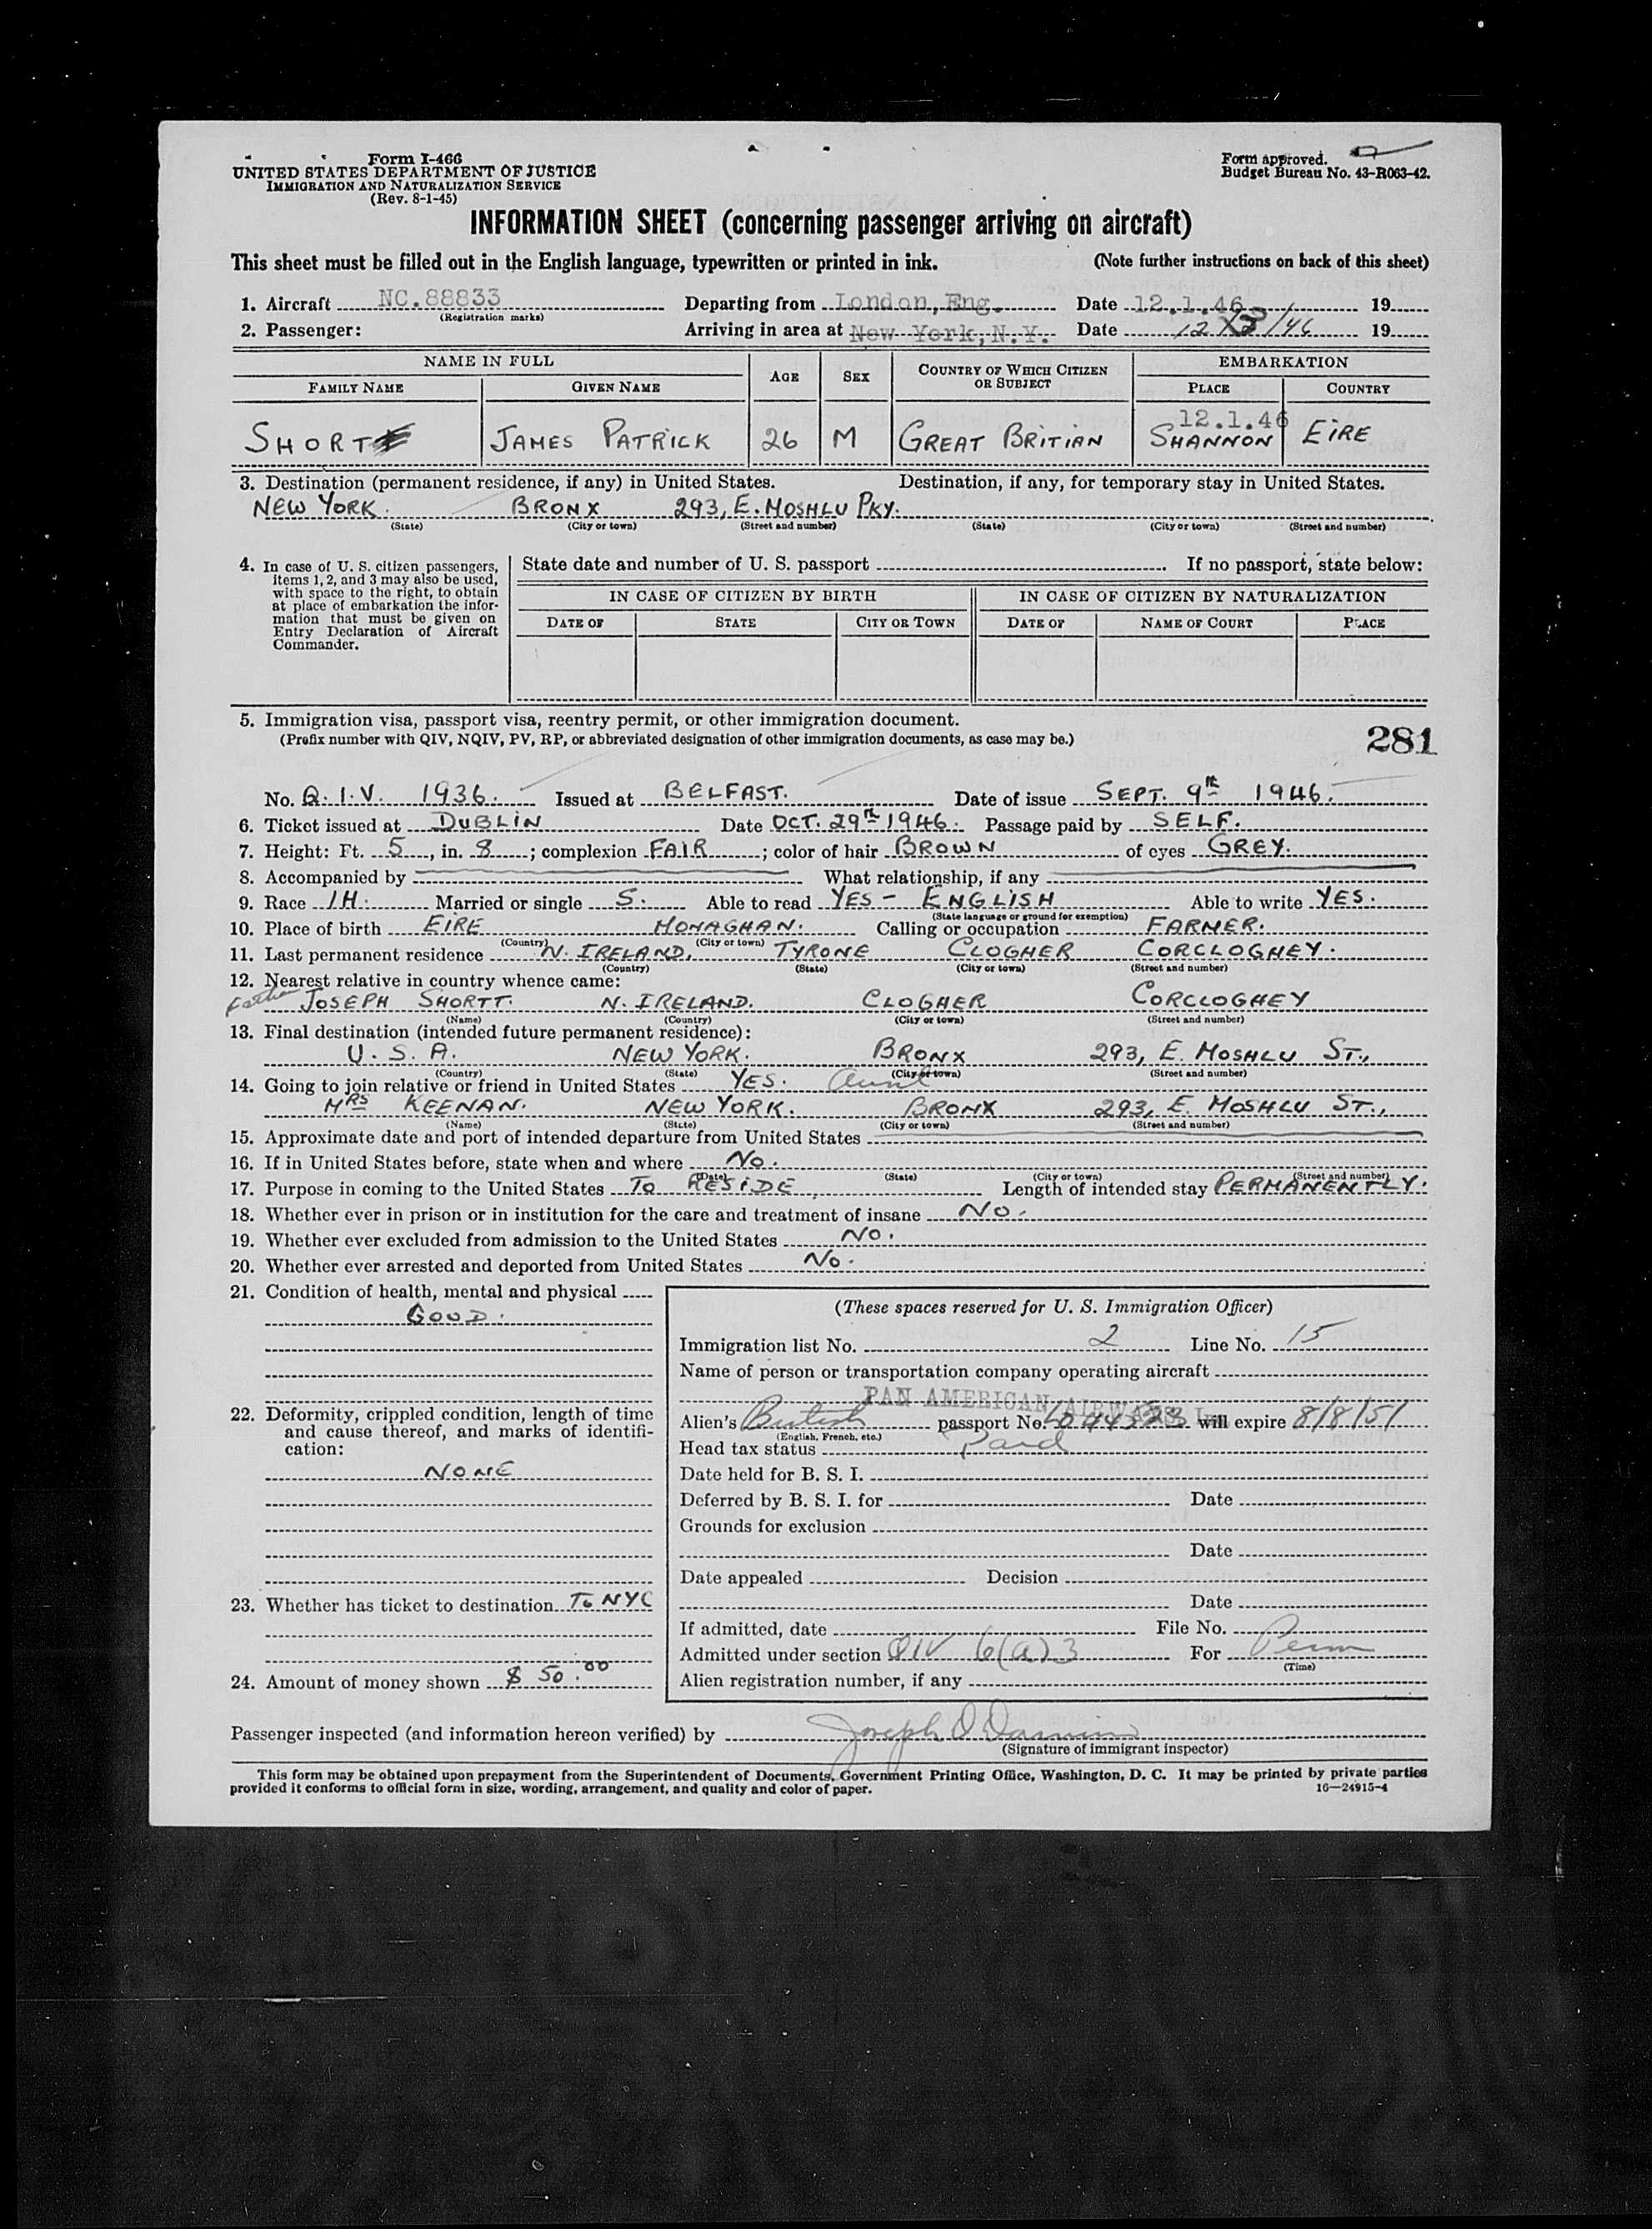 Form I-466
UNITED STATES DEPARTMENT OF JUSTICE
IMMIGRATION AND NATURALIZATION SERVICE
(Rev. 8-1-45)
Form approved.
Budget Bureau No. 43-R063-42.
INFORMATION SHEET (concerning passenger arriving on aircraft)
This sheet must be filled out in the English language, typewritten or printed in ink. (Note further instructions on back of this sheet)
1. Aircraft NC.88833 Departing from London, Eng. Date 12.1.46 19
(Registration marks)
2. Passenger: Arriving in area at New York, N.Y. Date 12/ /46 19
NAME IN FULL AGE SEX COUNTRY OF WHICH CITIZEN OR SUBJECT EMBARKATION
FAMILY NAME GIVEN NAME PLACE COUNTRY
12.1.46
SHORT JAMES PATRICK 26 M GREAT BRITIAN SHANNON EIRE
3. Destination (permanent residence, if any) in United States. Destination, if any, for temporary stay in United States.
NEW YORK. BRONX 293, E. MOSHLU PKY.
(State) (City or town) (Street and number) (State) (City or town) (Street and number)
4. In case of U. S. citizen passengers, items 1, 2, and 3 may also be used, with space to the right, to obtain at place of embarkation the information that must be given on Entry Declaration of Aircraft Commander.
State date and number of U. S. passport . If no passport, state below:
IN CASE OF CITIZEN BY BIRTH IN CASE OF CITIZEN BY NATURALIZATION
DATE OF STATE CITY OR TOWN DATE OF NAME OF COURT PLACE
5. Immigration visa, passport visa, reentry permit, or other immigration document.
(Prefix number with QIV, NQIV, PV, RP, or abbreviated designation of other immigration documents, as case may be.)
281
No. Q.I.V. 1936. Issued at BELFAST. Date of issue SEPT. 9th 1946.
6. Ticket issued at DUBLIN Date OCT. 29th 1946. Passage paid by SELF.
7. Height: Ft. 5, in. 8; complexion FAIR; color of hair BROWN of eyes GREY.
8. Accompanied by What relationship, if any
9. Race IH. Married or single S. Able to read YES - ENGLISH Able to write YES.
(State language or ground for exemption)
10. Place of birth EIRE MONAGHAN. Calling or occupation FARMER.
(Country) (City or town)
11. Last permanent residence N. IRELAND. TYRONE CLOGHER CORCLOGHEY.
(Country) (State) (City or town) (Street and number)
12. Nearest relative in country whence came:
Father JOSEPH SHORTT. N. IRELAND. CLOGHER CORCLOGHEY
(Name) (Country) (City or town) (Street and number)
13. Final destination (intended future permanent residence):
U.S.A. NEW YORK. BRONX 293, E. MOSHLU ST.,
(Country) (State) (City or town) (Street and number)
14. Going to join relative or friend in United States YES. Aunt
MRS KEENAN. NEW YORK. BRONX 293, E. MOSHLU ST.,
(Name) (State) (City or town) (Street and number)
15. Approximate date and port of intended departure from United States
16. If in United States before, state when and where No.
(Date) (State) (City or town) (Street and number)
17. Purpose in coming to the United States TO RESIDE Length of intended stay PERMANENTLY.
18. Whether ever in prison or in institution for the care and treatment of insane No.
19. Whether ever excluded from admission to the United States No.
20. Whether ever arrested and deported from United States No.
21. Condition of health, mental and physical
GOOD.
22. Deformity, crippled condition, length of time and cause thereof, and marks of identification:
NONE
23. Whether has ticket to destination To NYC
24. Amount of money shown $ 50.00
(These spaces reserved for U. S. Immigration Officer)
Immigration list No. 2 Line No. 15
Name of person or transportation company operating aircraft
PAN AMERICAN AIRWAYS
Alien's British passport No. will expire 8/8/51
(English, French, etc.)
Head tax status Paid
Date held for B. S. I.
Deferred by B. S. I. for Date
Grounds for exclusion
Date
Date appealed Decision
Date
If admitted, date File No.
Admitted under section QIV 6(a)3 For Perm
(Time)
Alien registration number, if any
Passenger inspected (and information hereon verified) by Joseph
(Signature of immigrant inspector)
This form may be obtained upon prepayment from the Superintendent of Documents, Government Printing Office, Washington, D. C. It may be printed by private parties
provided it conforms to official form in size, wording, arrangement, and quality and color of paper. 16—24915-4